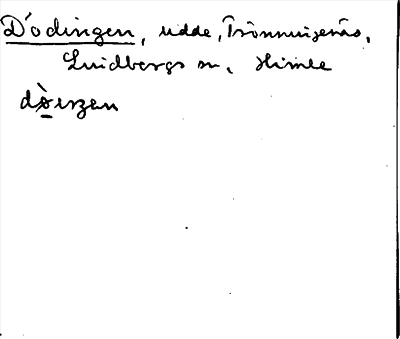 Dödingen, udde, Trönninge​näs,
Lindbergs sn, Himle